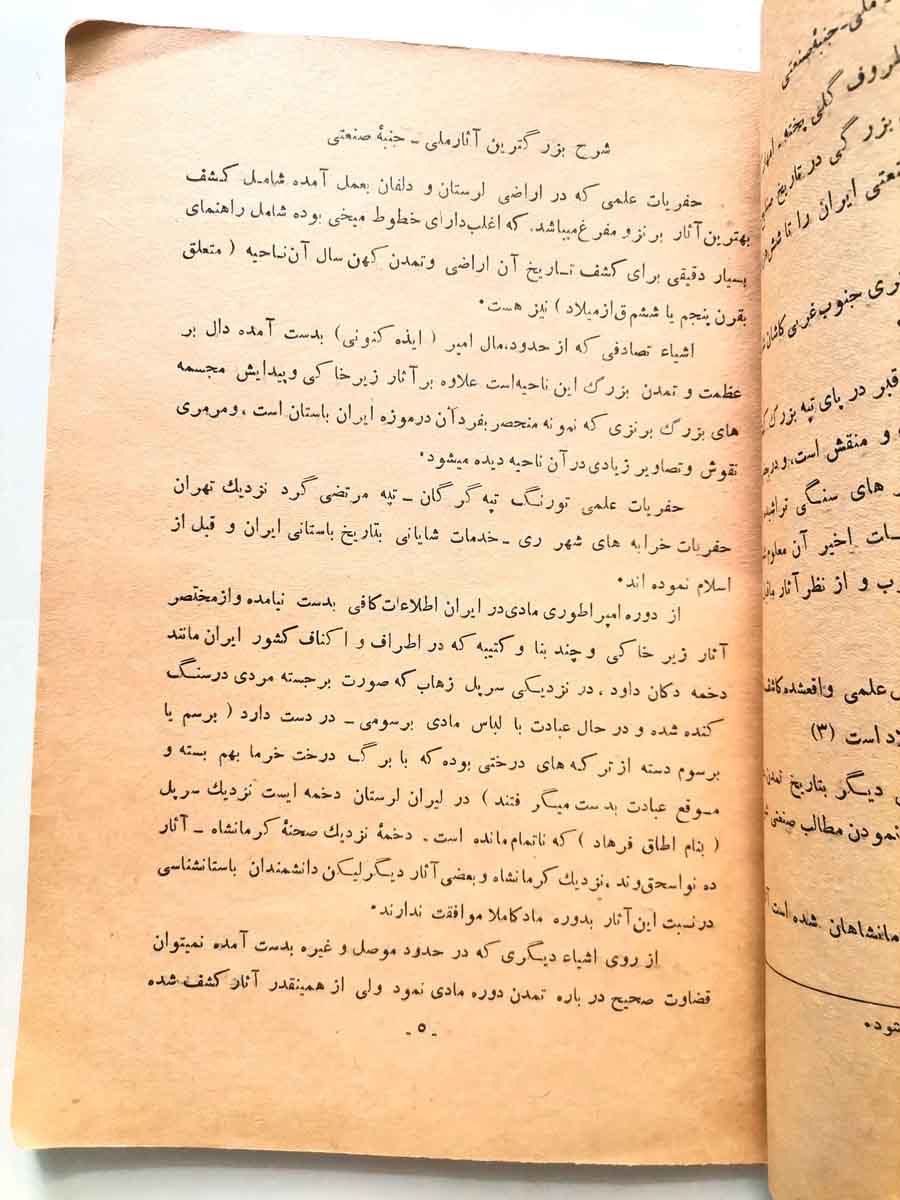 شرح بزرگترین آثار ملی ـ جنبهٔ صنعتی
حفریات علمی که در اراضی لرستان و دلفان بعمل آمده شامل کشف
بهترین آثار برنز و مفرغ میباشد، که اغلب دارای خطوط میخی بوده شامل راهنمای
بسیار دقیقی برای کشف تاریخ آن اراضی و تمدن کهن سال آن ناحیه ( متعلق
بقرن پنجم یا ششم ق از میلاد ) نیز هست.
اشیاء تصادفی که از حدود، مال امیر ( ایذه کنونی ) بدست آمده دال بر
عظمت و تمدن بزرگ این ناحیه است علاوه بر آثار زیر خاکی و پیدایش مجسمه
های بزرگ برنزی که نمونه منحصر بفرد آن در موزه ایران باستان است ، و مرمری
نقوش و تصاویر زیادی در آن ناحیه دیده میشود.
حفریات علمی تورنگ تپه گرگان ـ تپه مرتضی گرد نزدیك تهران
حفریات خرابه های شهر ری ـ خدمات شایانی بتاریخ باستانی ایران و قبل از
اسلام نموده اند.
از دوره امپراطوری مادی در ایران اطلاعات کافی بدست نیامده و از مختصر
آثار زیر خاکی و چند بنا و کتیبه که در اطراف و اکناف کشور ایران مانند
دخمه دکان داود ، در نزدیکی سرپل زهاب که صورت برجسته مردی در سنگ
کنده شده و در حال عبادت با لباس مادی برسومی ـ در دست دارد ( برسم یا
برسوم دسته از ترکه های درختی بوده که با برگ درخت خرما بهم بسته و
موقع عبادت بدست میگرفتند ) در لیران لرستان دخمه ایست نزدیك سرپل
( بنام اطاق فرهاد ) که ناتمام مانده است . دخمهٔ نزدیك صحنهٔ کرمانشاه ـ آثار
ده نو اسحق وند ، نزدیك کرمانشاه و بعضی آثار دیگر لیکن دانشمندان باستانشناسی
در نسبت این آثار بدوره ماد کاملا موافقت ندارند.
از روی اشیاء دیگری که در حدود موصل و غیره بدست آمده نمیتوان
قضاوت صحیح در باره تمدن دوره مادی نمود ولی از همینقدر آثار کشف شده
- ٥ -
ملی ـ جنبهٔ صنعتی
ظروف گلی پخته ـ
بزرگی در تاریخ
صنعتی ایران را تا شش
جنوب غربی کاشان
قبر در پای تپه بزرگ
و منقش است، و در
های سنگی
اخیر آن معلوم
و از نظر آثار
علمی و اقعشده کاشف
است (۳)
دیگر بتاریخ تمدن
نمودن مطالب صنعتی
شده است